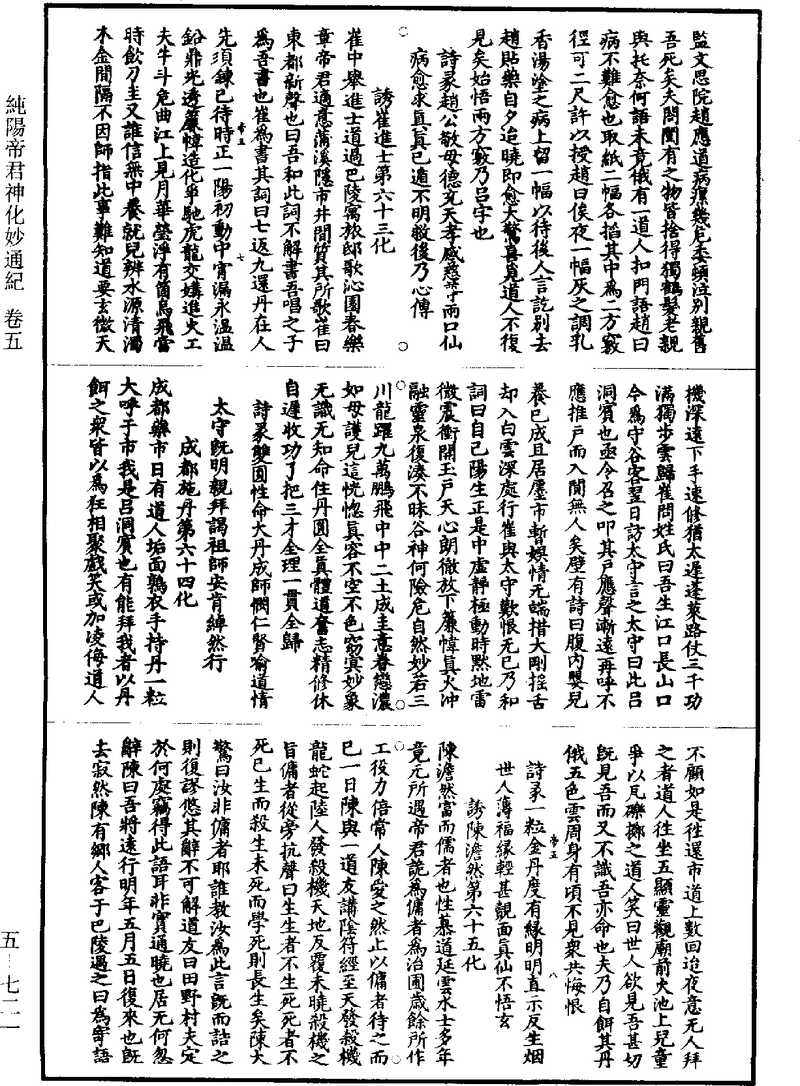 純陽帝君神化妙通紀 卷五
五—七二一
監文思院趙應道病瘰幾危委頓泣別親舊
吾死矣夫閭閻有之物皆捨得獨鶴髮老親
與托奈何語未竟俄有一道人扣門語趙曰
病不難愈也取紙二幅各掐其中爲二方竅
徑可二尺許以授趙曰俟夜一幅灰之調乳
香湯塗之病上留一幅以待後人言訖別去
趙貼藥自夕迨曉即愈大驚喜覓道人不復
見矣始悟兩方竅乃呂字也
詩彖趙公敬母德文天孝感慈尊兩口仙
病愈求真真已遁不明教後乃心傳
誘崔進士第六十三化
崔中舉進士道過巴陵寓旅邸歌沁園春樂
章帝君適意蒲溪隱市井間質其所歌崔曰
東都新聲也曰吾和此詞不解書吾唱之子
爲吾書也崔爲書其詞曰七返九還丹在人
帝五
七
先須鍊已待時正一陽初動中宵漏永溫溫
鉛鼎光透簾幃造化爭馳虎龍交媾進火工
夫牛斗危曲江上見月華瑩淨有箇烏飛當
時飲刀圭又誰信無中養就兒辨水源清濁
木金間隔不因師指此事難知道要玄微天
機深遠下手速修猶太遲蓬萊路仗三千功
滿獨步雲歸崔問姓氏曰吾生江口長山口
今爲守谷客翌日訪太守言之太守曰此呂
洞賓也亟令召之叩其戶應聲漸遠再呼不
應推戶而入闃無人矣壁有詩曰腹內嬰兒
養已成且居廛市暫娛情无端措大剛揺舌
却入白雲深處行崔與太守歎恨无已乃和
詞曰自己陽生正是中虛靜極動時黙地雷
微震衝開玉戶天心朗徹放下簾幃真火沖
融靈泉復湊不昧谷神何險危自然妙若三
川龍躍九萬鵬飛中中二土成圭意眷戀濃
如母護兒這恍惚真容不空不色窈冥妙象
无識无知命住丹圓全真體道奮志精修休
自遲收功了把三才全理一貫全歸
詩彖雙圓性命大丹成師憫仁賢喻道情
太守既明親拜謁祖師安肯綽然行
成都施丹第六十四化
成都藥市日有道人垢面鶉衣手持丹一粒
大呼于市我是呂洞賓也有能拜我者以丹
餌之衆皆以爲狂相聚戲笑或加淩侮道人
不顧如是往還市道上數回迨夜意无人拜
之者道人往坐五顯靈觀廟前火池上兒童
爭以瓦礫擲之道人笑曰世人欲見吾甚切
旣見吾而又不識吾亦命也夫乃自餌其丹
俄五色雲周身有頃不見衆共悔恨
帝五
八
詩彖一粒金丹度有緣明明直示反生烟
世人薄福緣輕甚覿面真仙不悟玄
誘陳澹然第六十五化
陳澹然富而儒者也性慕道延雲水士多年
竟无所遇帝君詭爲傭者爲治圃歲餘所作
工役力倍常人陳愛之然止以傭者待之而
已一日陳與一道友講陰符經至天發殺機
龍蛇起陸人發殺機天地反覆未曉殺機之
旨傭者從旁抗聲曰生生者不生死死者不
死已生而殺生未死而學死則長生矣陳大
驚曰汝非傭者耶誰教汝爲此言既而詰之
則復謬悠其辭不可解道友曰田野村夫定
於何處竊得此語耳非實通曉也居无何忽
辭陳曰吾將遠行明年五月五日復來也旣
去寂然陳有鄉人客于巴陵遇之曰爲寄語